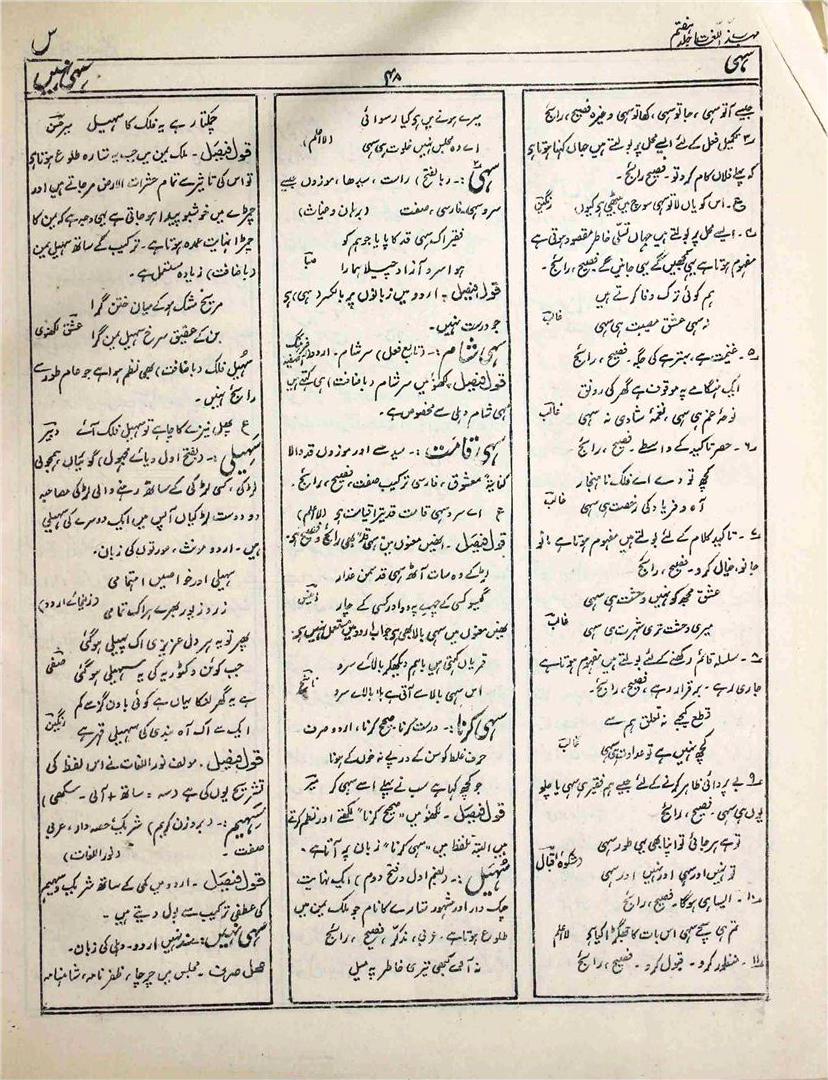 مہذب اللغات جلد ہفتم
س
سہی
۴۸
سہی نہیں
جیسے آتو سہی، جاتو سہی، کھاتو سہی وغیرہ فصیح، رائج
۳۔ تکمیل فعل کے لئے ایسے محل پر بولتے ہیں جہاں کہنا ہوتا ہو
کہ پہلے فلاں کام کردو تو۔ فصیح رائج۔
ع۔ اس کو یاں لاتو سہی سوچ میں بیٹھی ہو کیوں رنگین
۴۔ ایسے محل پر بولتے ہیں جہاں تسلی خاطر مقصود ہوتی ہے
مفہوم ہوتا ہے یہی سمجھیں گے یہی جانیں گے فصیح، رائج۔
ہم کوئی ترک وفا کرتے ہیں
نہ سہی عشق مصیبت ہی سہی غالب
۵۔ غنیمت ہے، بہتر ہے کی جگہ۔ فصیح، رائج
ایک ہنگامے پہ موقوف ہے گھر کی رونق
نوحۂ غم ہی سہی، نغمۂ شادی نہ سہی غالب
۶۔ حصر تاکید کے واسطے۔ فصیح، رائج
کچھ تو دے اے فلک ناہنجار
آہ و فریاد کی رخصت ہی سہی غالب
۷۔ تاکید کلام کے لئے بولتے ہیں مفہوم ہوتا ہے
جانو، خیال کرو۔ فصیح، رائج
عشق مجھ کو نہیں وحشت ہی سہی
میری وحشت تری شہرت ہی سہی غالب
۸۔ سلسلہ قائم رکھنے کے لئے بولتے ہیں مفہوم ہوتا ہے
جاری رہے۔ برقرار رہے، فصیح، رائج۔
قطع کیجے نہ تعلق ہم سے
کچھ نہیں ہے تو عداوت ہی سہی غالب
۹۔ بے پروائی ظاہر کرنے کے لئے جیسے ہم فقیر ہی سہی یا چلو
یوں ہی سہی۔ فصیح، رائج
تو ہے ہرجائی تو اپنا بھی یہی طور سہی
تو نہیں اور سہی اور نہیں اور سہی (شکوۂ اقبال)
۱۰۔ ایسا ہی ہوگا۔ فصیح، رائج
تم ہی سچے سہی اس بات کا جھگڑا کیا ہو لااعلم
۱۱۔ منظور کرو۔ قبول کرو۔ فصیح، رائج
میرے ہونے میں ہی کیا رسوائی
اے وہ مجلس نہیں خلوت ہی سہی (لااعلم)
سہی :۔ (بالفتح) راست، سیدھا، موزوں جیسے
سرو سہی، فارسی، صفت (برہان وغیاث)
فقر اک سہی قد کا پایا جو ہم کو
ہوا سرو آزاد چیلا ہمارا صبا
قول فیصل۔ اردو میں زبانوں پر بالکسر (سہی) ہو
جو درست نہیں۔
سہی شام :۔ (تابع فعل) سر شام۔ اردو (فرہنگ آصفیہ)
قول فیصل لکھنؤ میں سر شام (باضافت) ہی کہتے ہیں
سہی شام دہلی سے مخصوص ہے۔
سہی قامت :۔ سیدھے اور موزوں قد والا
کنایۃً معشوق، فارسی ترکیب صفت، فصیح، رائج۔
ع اے سرو سہی قامت قد تیرا قیامت ہو (لااعلم)
قول فیصل۔ انہیں معنوں میں سہی قد بھی رائج و فصیح ہے
لڑکے وہ سات آٹھ سہی قد سمن عذار
گیسو کسی کے چہرے پہ دو اور کسی کے چار
انہیں معنوں میں سہی بالا بھی ہو جو اب اردو میں مستعمل نہیں ہے
قمریاں کہتی ہیں باہم دیکھ کر بالائے سرو
اس سہی بالا سے آتی ہے بلا بالائے سرو ناسخ
سہی کرنا :۔ درست کرنا، صحیح کرنا، اردو صرف
حرف غلط کو سن کے درپے نہ خوں کے ہونا
جو کچھ کہا ہے سب نے پہلے اسے سہی کر میر
قول فیصل۔ لکھنؤ میں "صحیح کرنا" لکھتے اور نظم کرتے
ہیں البتہ تلفظ میں "سہی کرنا" زبان پر آتا ہے۔
سُہَیل :۔ (بضم اول و فتح دوم) ایک نہایت
چمک دار اور مشہور ستارے کا نام جو ملک یمن میں
طلوع ہوتا ہے۔ عربی، مذکر، فصیح، رائج
نہ آئے کبھی تیری خاطر پہ میل
چمکتا رہے یہ فلک کا سہیل میر حسن
قول فیصل۔ ملک یمن میں جب یہ ستارہ طلوع ہوتا ہے
تو اس کی تاثیر سے تمام حشرات الارض مر جاتے ہیں اور
چمڑے میں خوشبو پیدا ہو جاتی ہے یہی وجہ ہے کہ یمن کا
چمڑا نہایت عمدہ ہوتا ہے۔ ترکیب کے ساتھ سہیل یمن
(باضافت) زیادہ مستعمل ہے۔
مریخ مشک ہو کے میان ختن گرا
بن کے عقیق سرخ سہیل یمن گرا عشق لکھنوی
سہیل فلک (باضافت) بھی نظم ہوا ہے جو عام طور سے
رائج نہیں۔
ع پھل نیزے کا چاہے تو سہیل فلک آئے دبیر
سہیلی :۔ (بفتح اول ویائے مجہول) گوئیاں، ہمجولی
لڑکی، کسی لڑکی کے ساتھ رہنے والی لڑکی مصاحبہ
دو دوست لڑکیاں آپس میں ایک دوسرے کی سہیلی
ہیں۔ اردو مونث، عورتوں کی زبان۔
سہیلی اور خواصیں اہتمامی
زر و زیور بھرے ہر اک تمامی (زلیخائے اردو)
پھر تو یہ ہر دل عزیزی اک پہیلی ہوگئی
جب کوئن وکٹوریہ کی یہ سہیلی ہوگئی صفی
ہے یہ گھر لنکا یہاں ہے کوئی باون گز سے کم
ایک سے اک آہ بندی کی سہیلی قہر ہے رنگین
قول فیصل۔ مولف نور اللغات نے اس لفظ کی
تشریح یوں کی ہے (سہ = ساتھ + آلی۔ سکھی)
سہیم :۔ (بروزن کریم) شریک، حصہ دار، عربی
صفت۔ (نور اللغات)
قول فیصل۔ اردو میں کمی کے ساتھ شریک و سہیم
کی عطفی ترکیب سے بول دیتے ہیں۔
سہی نہیں :۔ سند نہیں اردو۔ دہلی کی زبان۔
محل صرف۔ مجلس میں چرچا، ظفر نامہ، شاہنامہ